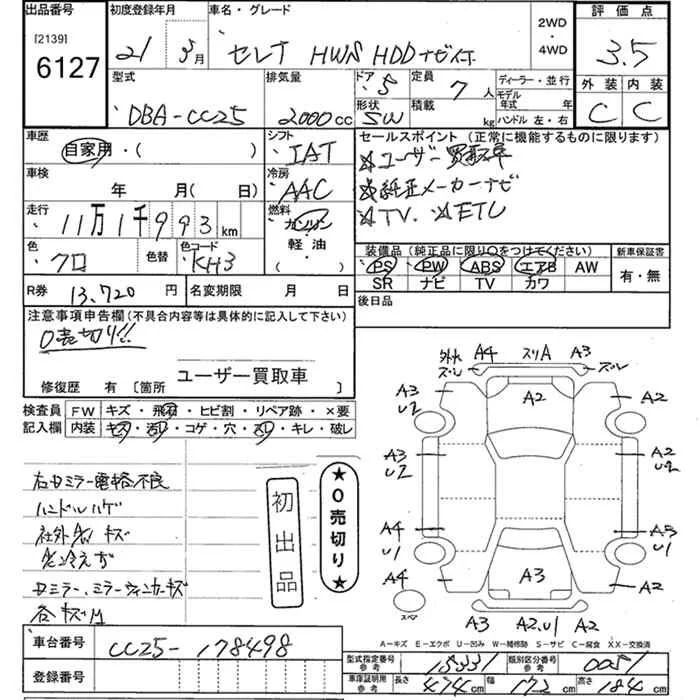 出品番号 初度登録年月 車名・グレード 2WD・4WD 評価点
[2139]
6127
21 5月 セレナ HWS HDDナビ付 3.5
型式 排気量 ドア 定員 ディーラー・並行 外装 内装
DBA-CC25 2000cc 5 7人 モデル年式 年 C C
形状 SW 積載 kg ハンドル 左・右
車歴 シフト セールスポイント (正常に機能するものに限ります)
自家用・( ) IAT ☆ユーザー買取車
車検 冷房 ☆純正メーカーナビ
年 月(日) AAC ☆TV. ☆ETC
走行 燃料
11万1千993km ガソリン・軽油・( )
色 色替 色コード 装備品 (純正品に限り○をつけてください) 新車保証書
クロ KH3 PS PW ABS エアB AW 有・無
SR ナビ TV カワ
R券 13,720円 名変期限 月 日 後日品
注意事項申告欄(不具合内容等は具体的に記入して下さい)
0売切り!!
ユーザー買取車
修復歴 有 [箇所 ]
検査員 FW キズ・飛石・ヒビ割・リペア跡・×要
記入欄 内装 キズ・汚レ・コゲ・穴・スレ・キレ・破レ
右ドミラー電格不良
ハンドルハゲ
キズ
ドミラー、ミラーウィンカーキズ
各キズ凹
初出品
★0売切り★
A4 スリA A3
A3 A2 A2
U2
A3 A2
U2 U2
A4 A3
U1 U1
A4 A3 A2
スペア
A3 A2.U1 A2
A-キズ E-エクボ U-凹み W-補修跡 S-サビ C-腐食 XX-交換済
車台番号 CC25-178498
登録番号
型式指定番号 参考 15331 類別区分番号 参考 0051
車庫証明用 参考 長さ 474cm 幅 172cm 高さ 184cm